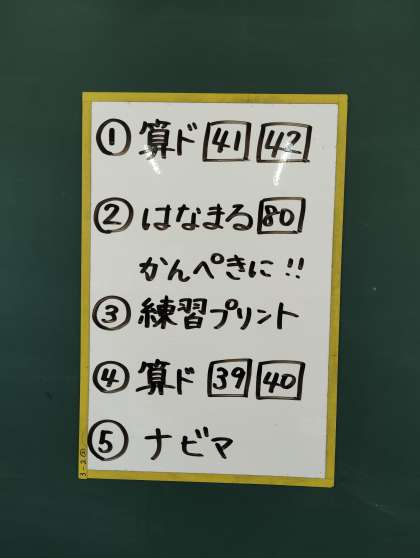 ① 算ド 41 42
② はなまる 80
かんぺきに!!
③ 練習プリント
④ 算ド 39 40
⑤ ナビマ